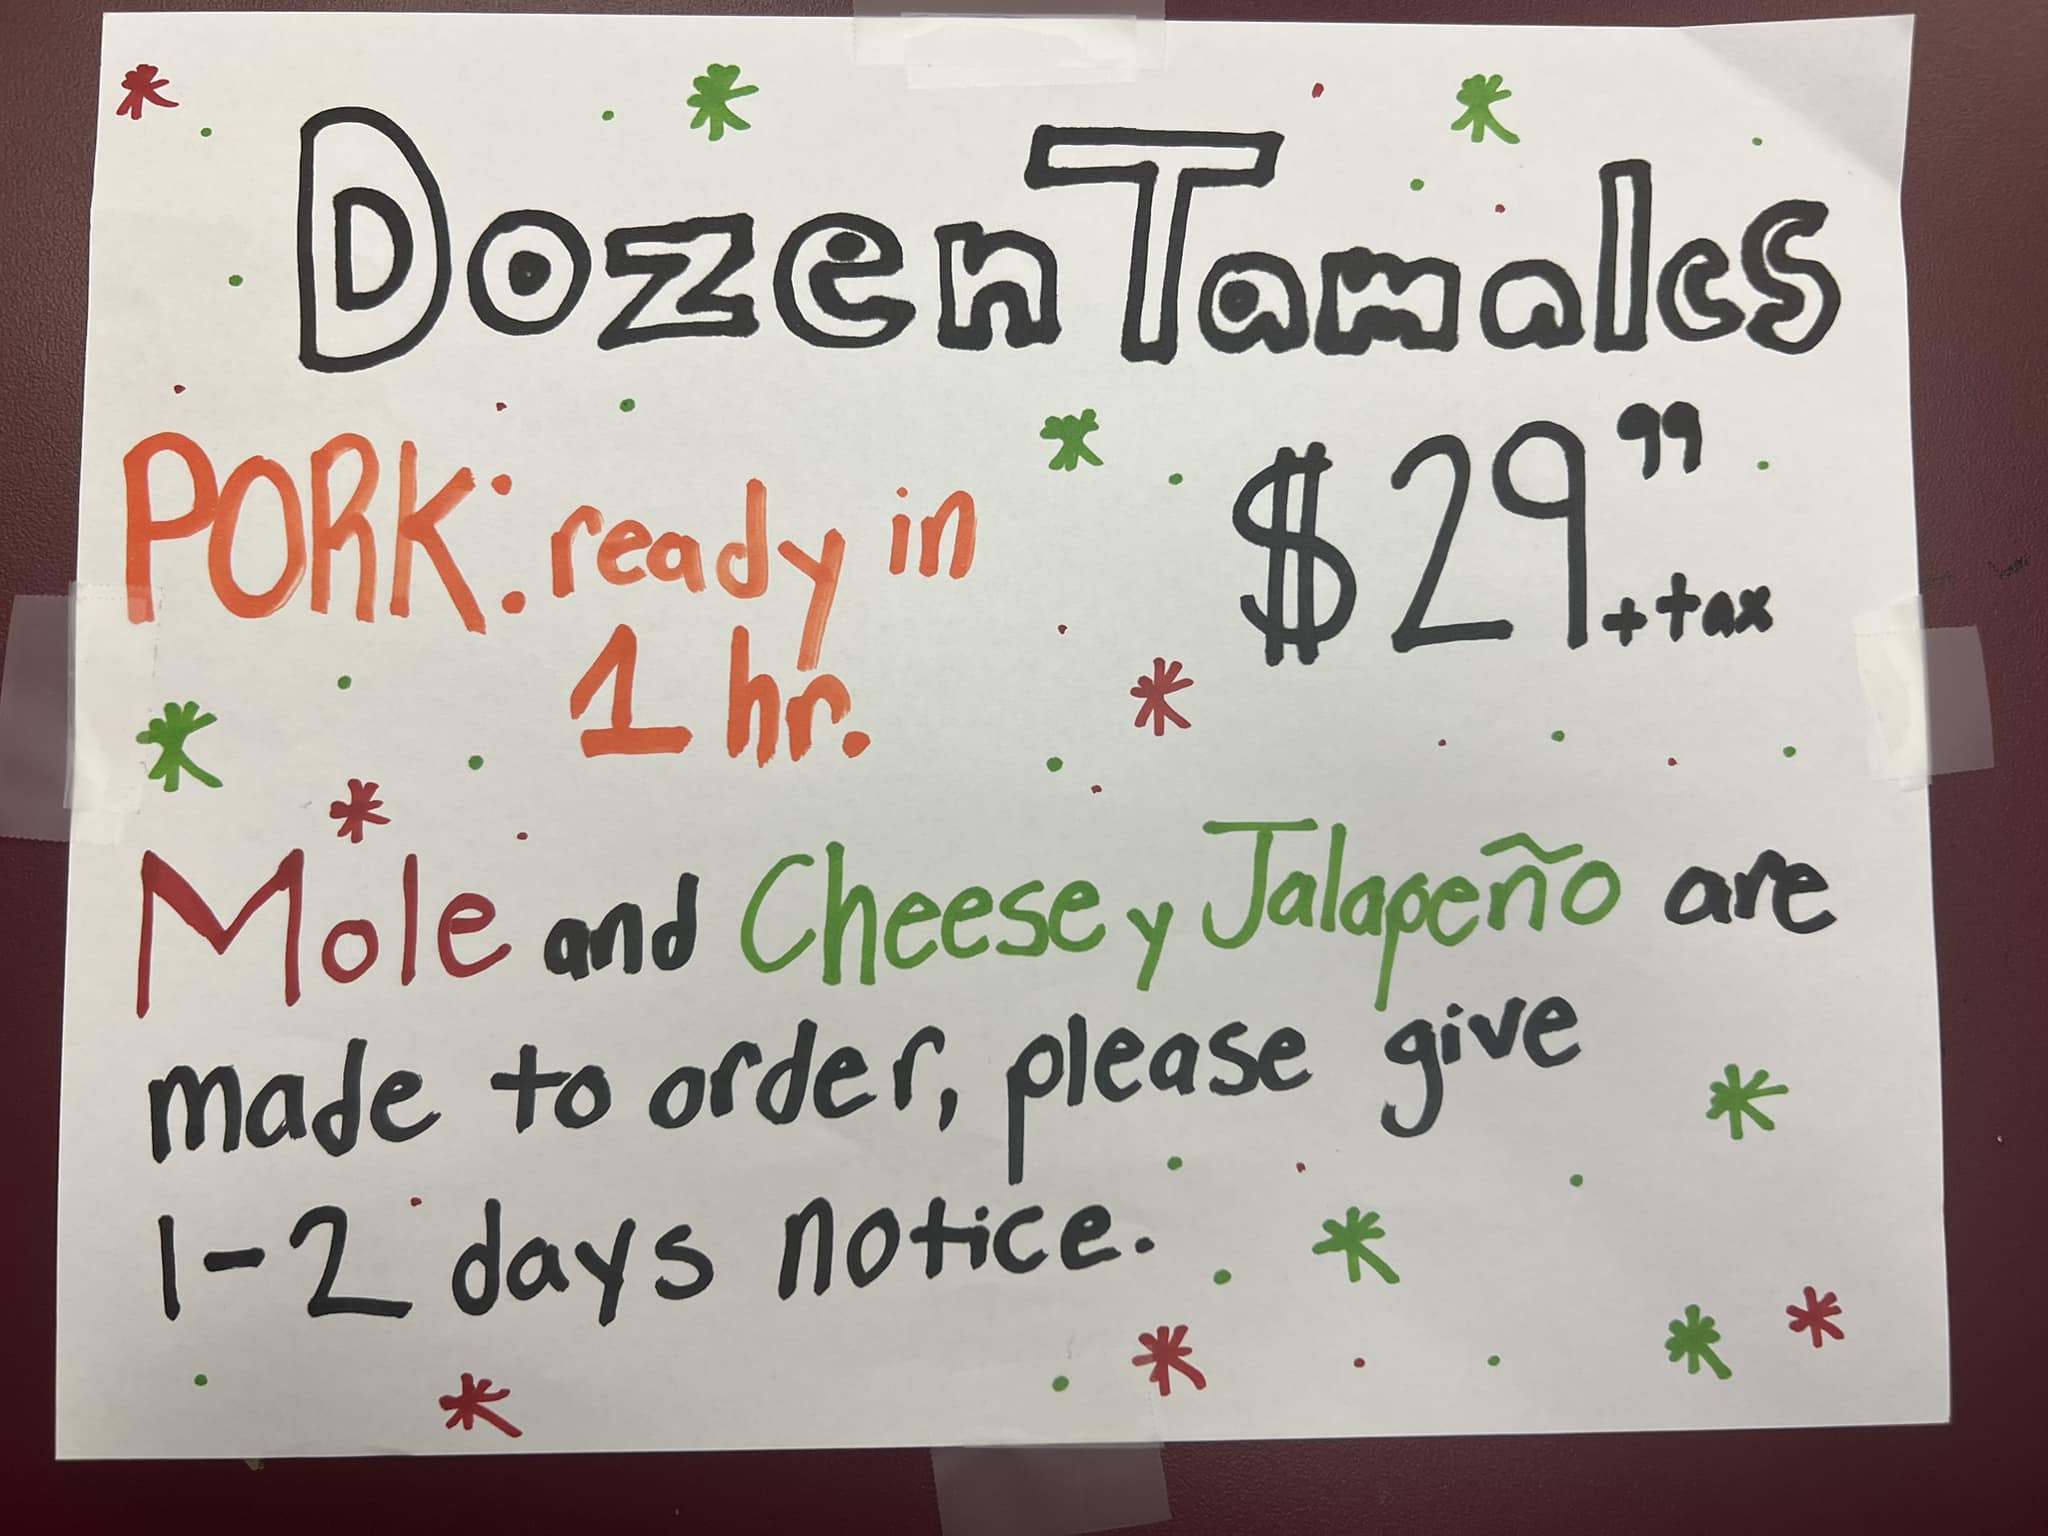 Dozen Tamales
PORK: ready in
1 hr.
$29.99 + tax
Mole and Cheese y Jalapeño are
made to order, please give
1-2 days notice.